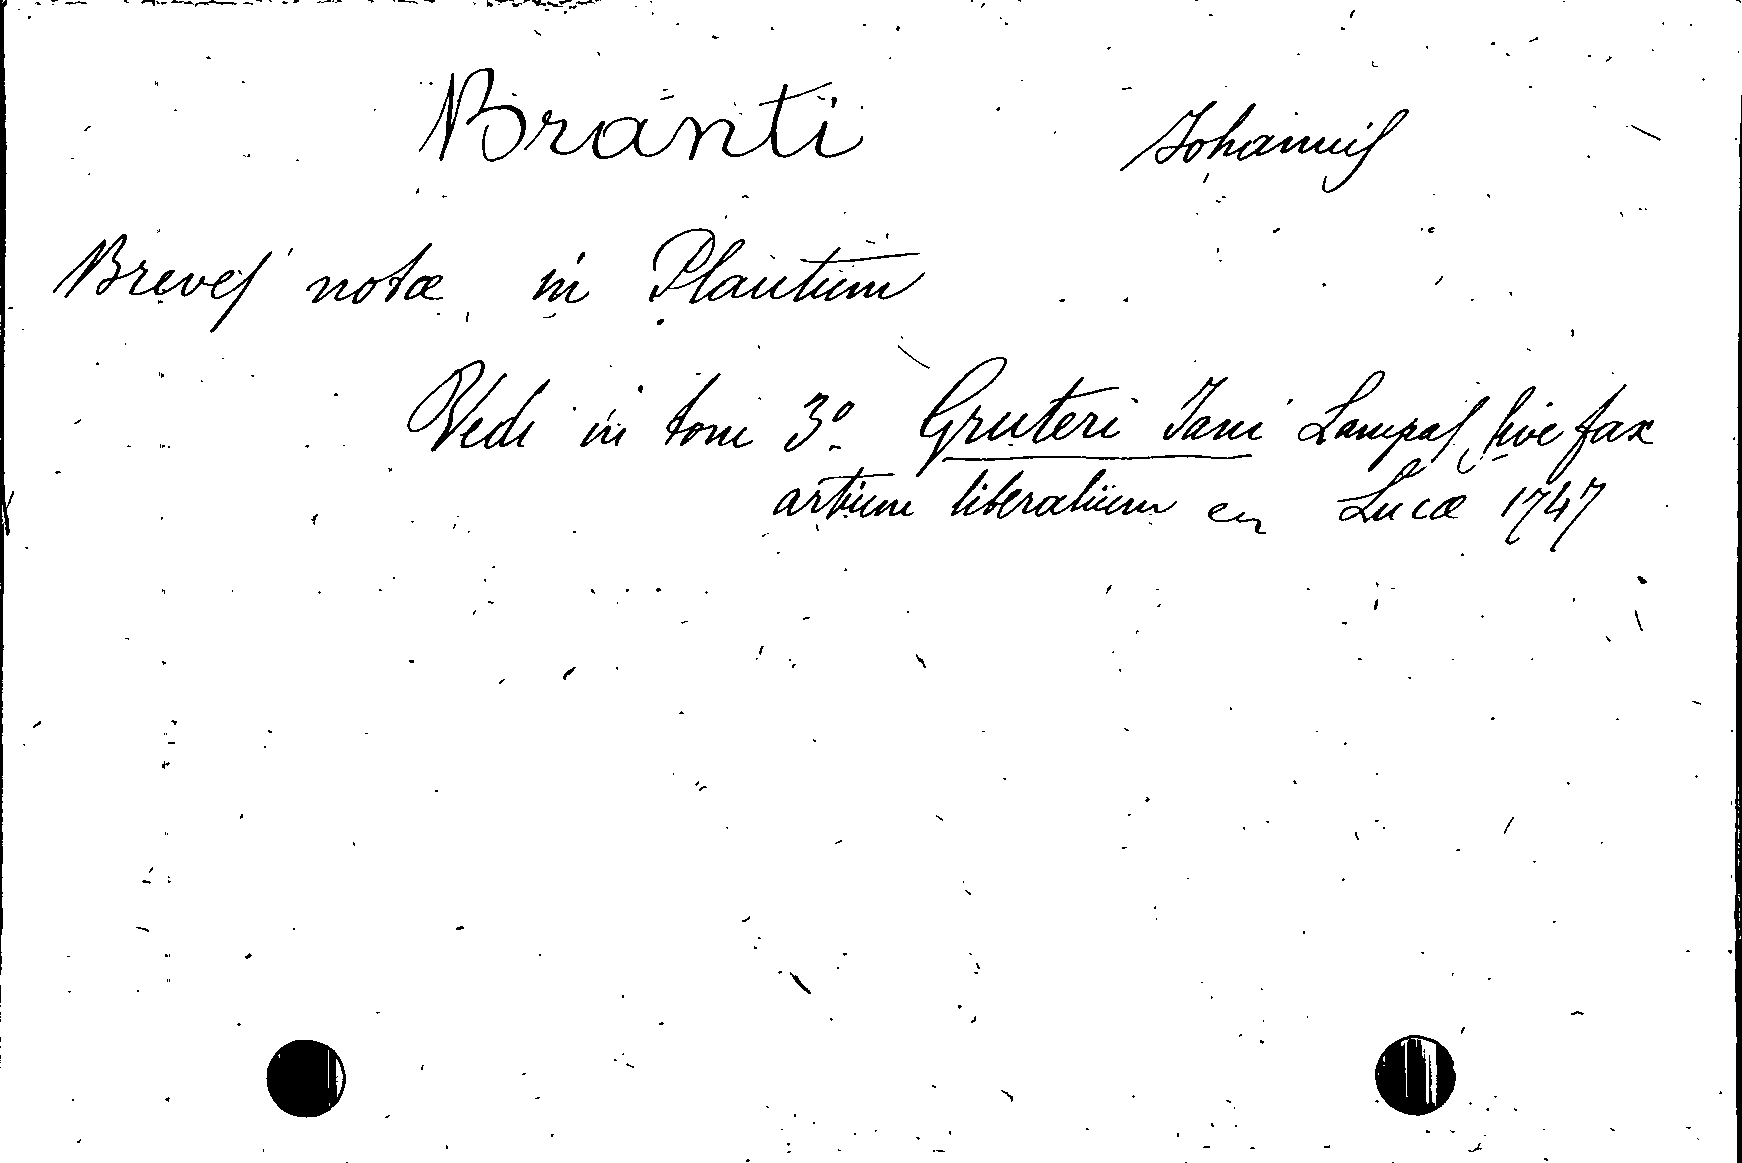 Branti Johannis
Breves notæ in Plautum
Vedi in tom 3º Gruteri Jani Lampas, sive fax
artium liberalium Lucæ 1747